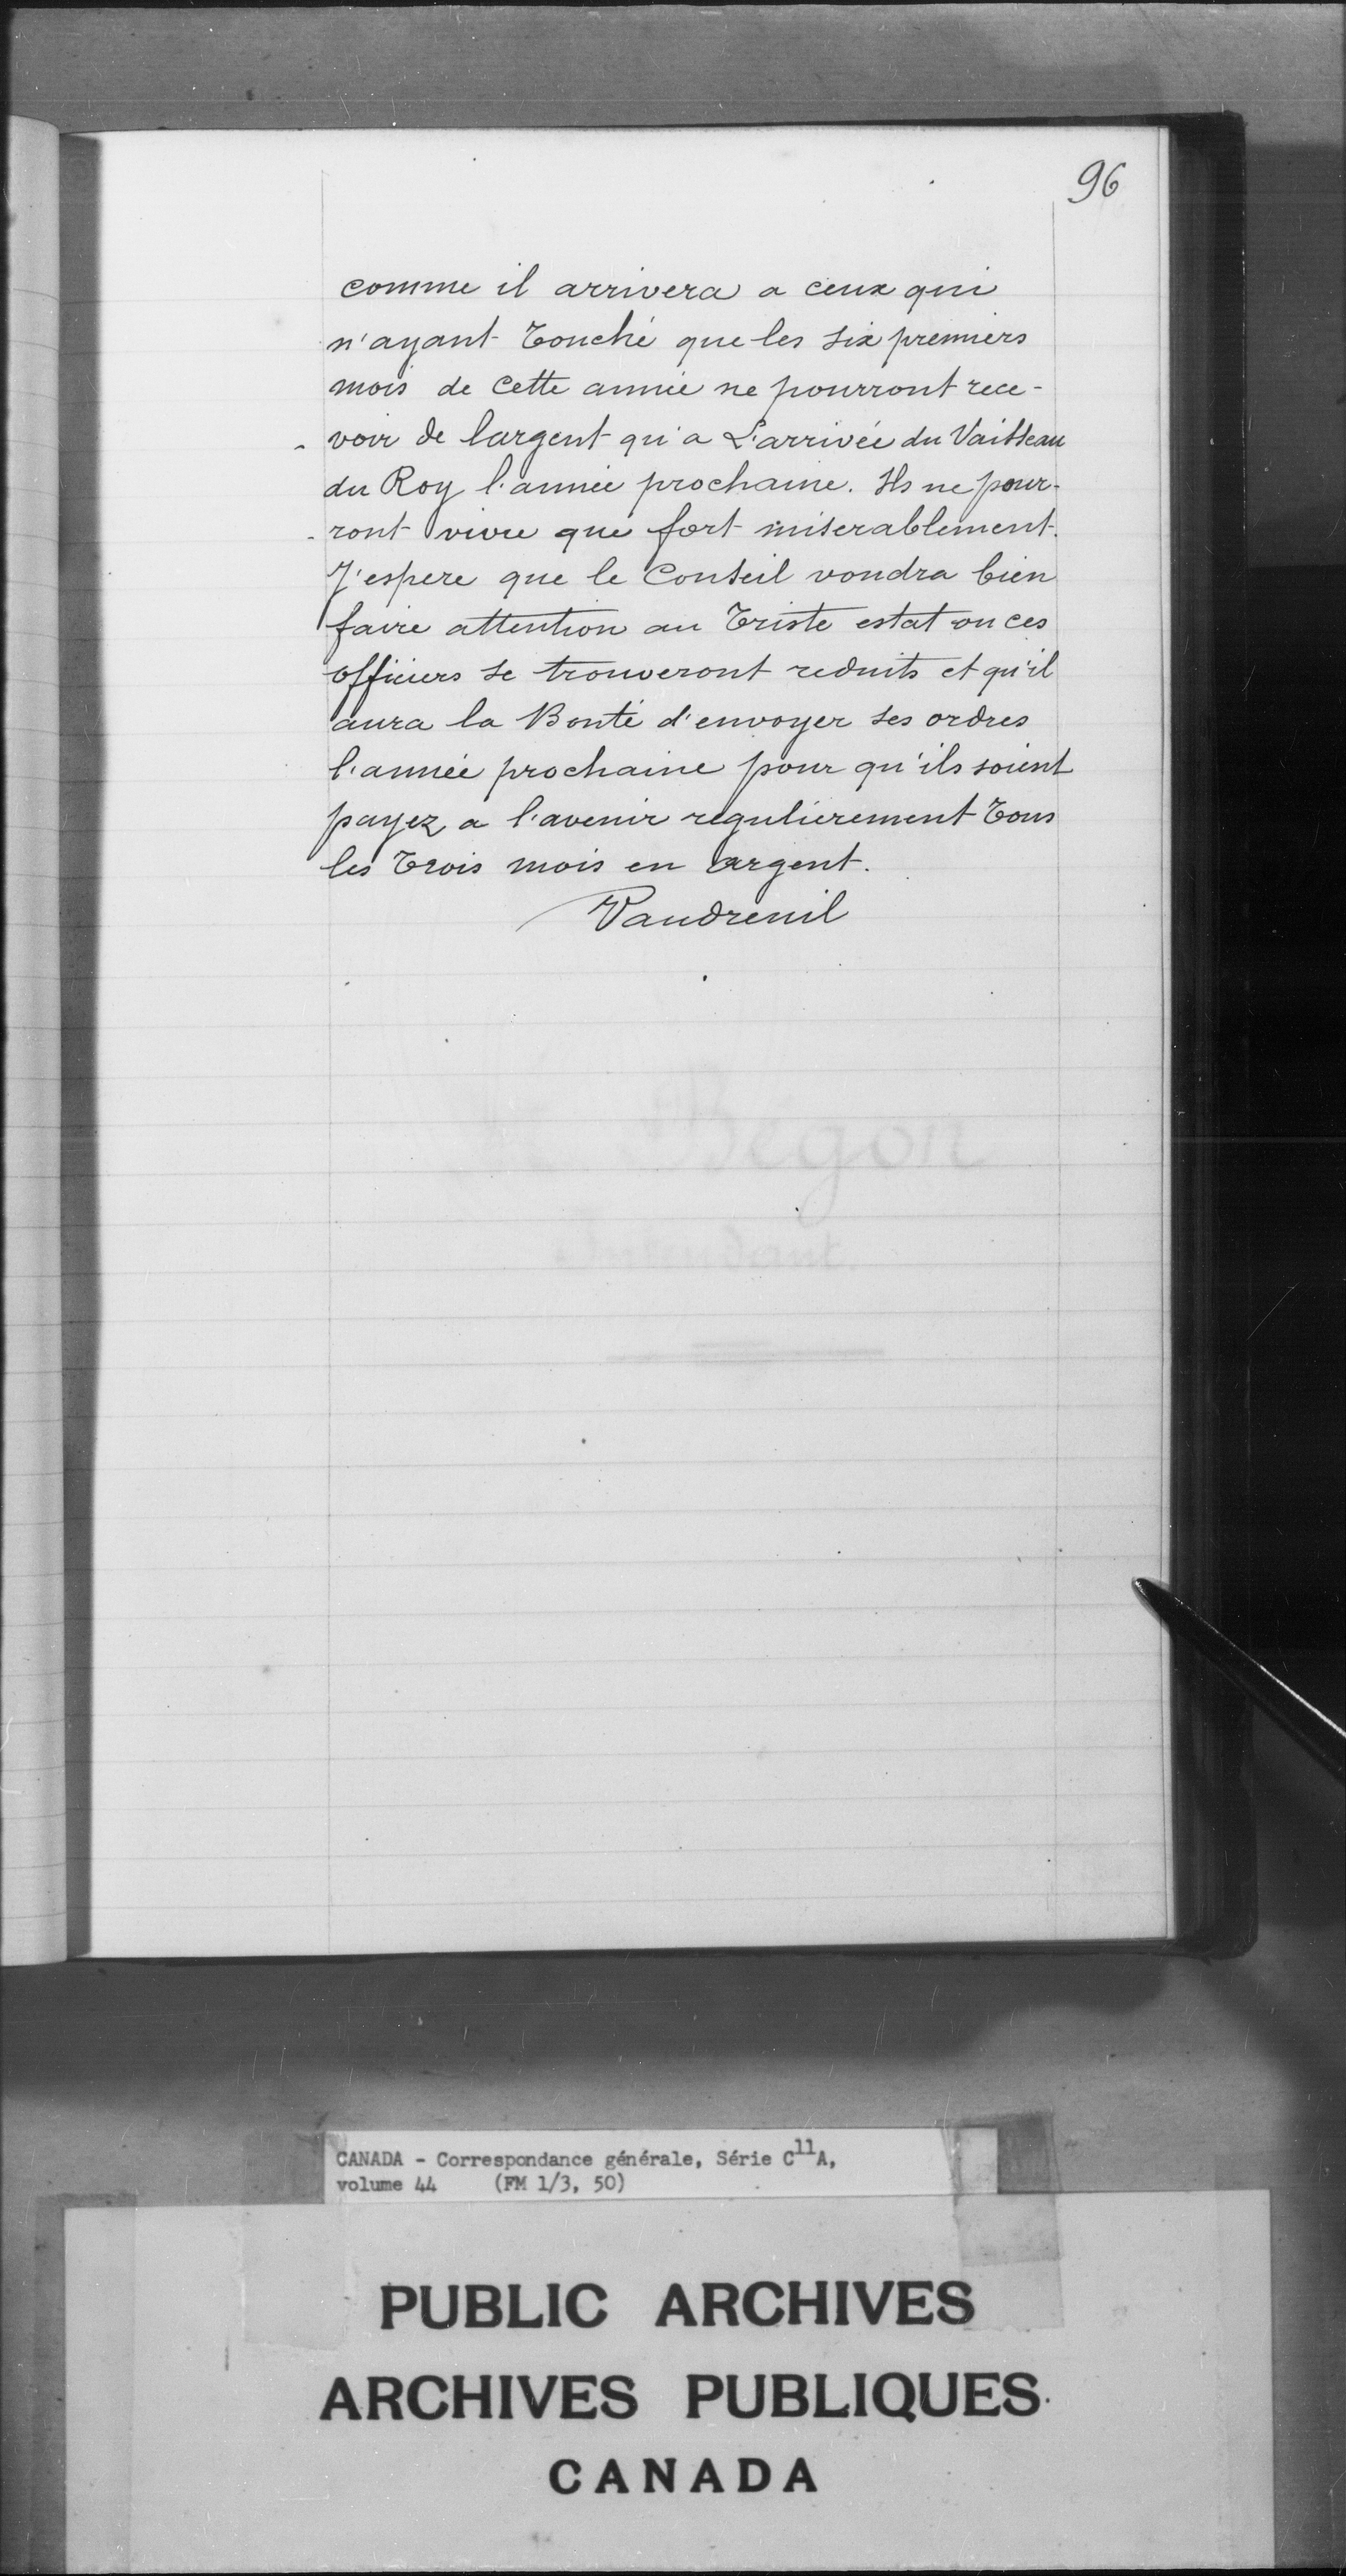 96
comme il arrivera a ceux qui
n'ayant Touché que les six premiers
mois de cette année ne pourront rece-
- voir de largent qu'a L'arrivée du Vaisseau
du Roy l'année prochaine. Ils ne pour-
- ront vivre que fort miserablement.
J'espere que le Conseil voudra bien
faire attention au Triste estat ou ces
officiers se trouveront reduits et qu'il
aura la Bonté d'envoyer ses ordres
l'année prochaine pour qu'ils soient
payez a l'avenir regulierement Tous
les Trois mois en argent.
Vaudreuil
Bégon
Intendant
CANADA - Correspondance générale, Série C11A,
volume 44 (FM 1/3, 50)
PUBLIC ARCHIVES
ARCHIVES PUBLIQUES
CANADA